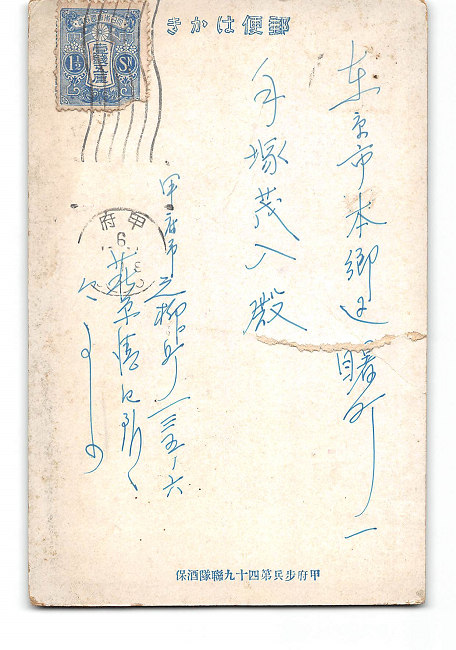 郵便はかき
1½ Sn.
壹錢五厘
東京市本郷区曙町一
手塚茂 殿
甲府
6
甲府市 柳町一三五ノ六
甲府步兵第四十九聯隊酒保